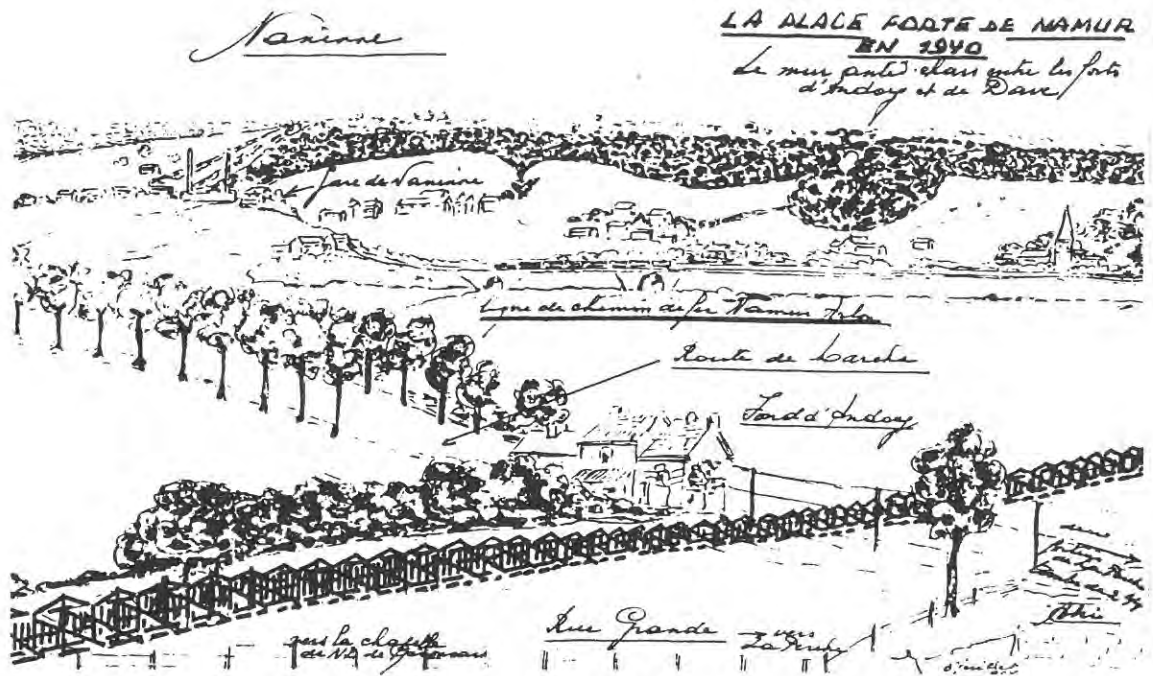 Naninne
LA PLACE FORTE DE NAMUR
EN 1940
Le mur anti-chars entre les forts
d'Andoy et de Dave
Gare de Naninne
Ligne de chemin de fer Namur Arlon
Route de Marche
Fond d'Andoy
vers la chapelle
de ND de
Rue Grande
vers
La Perche
Abri